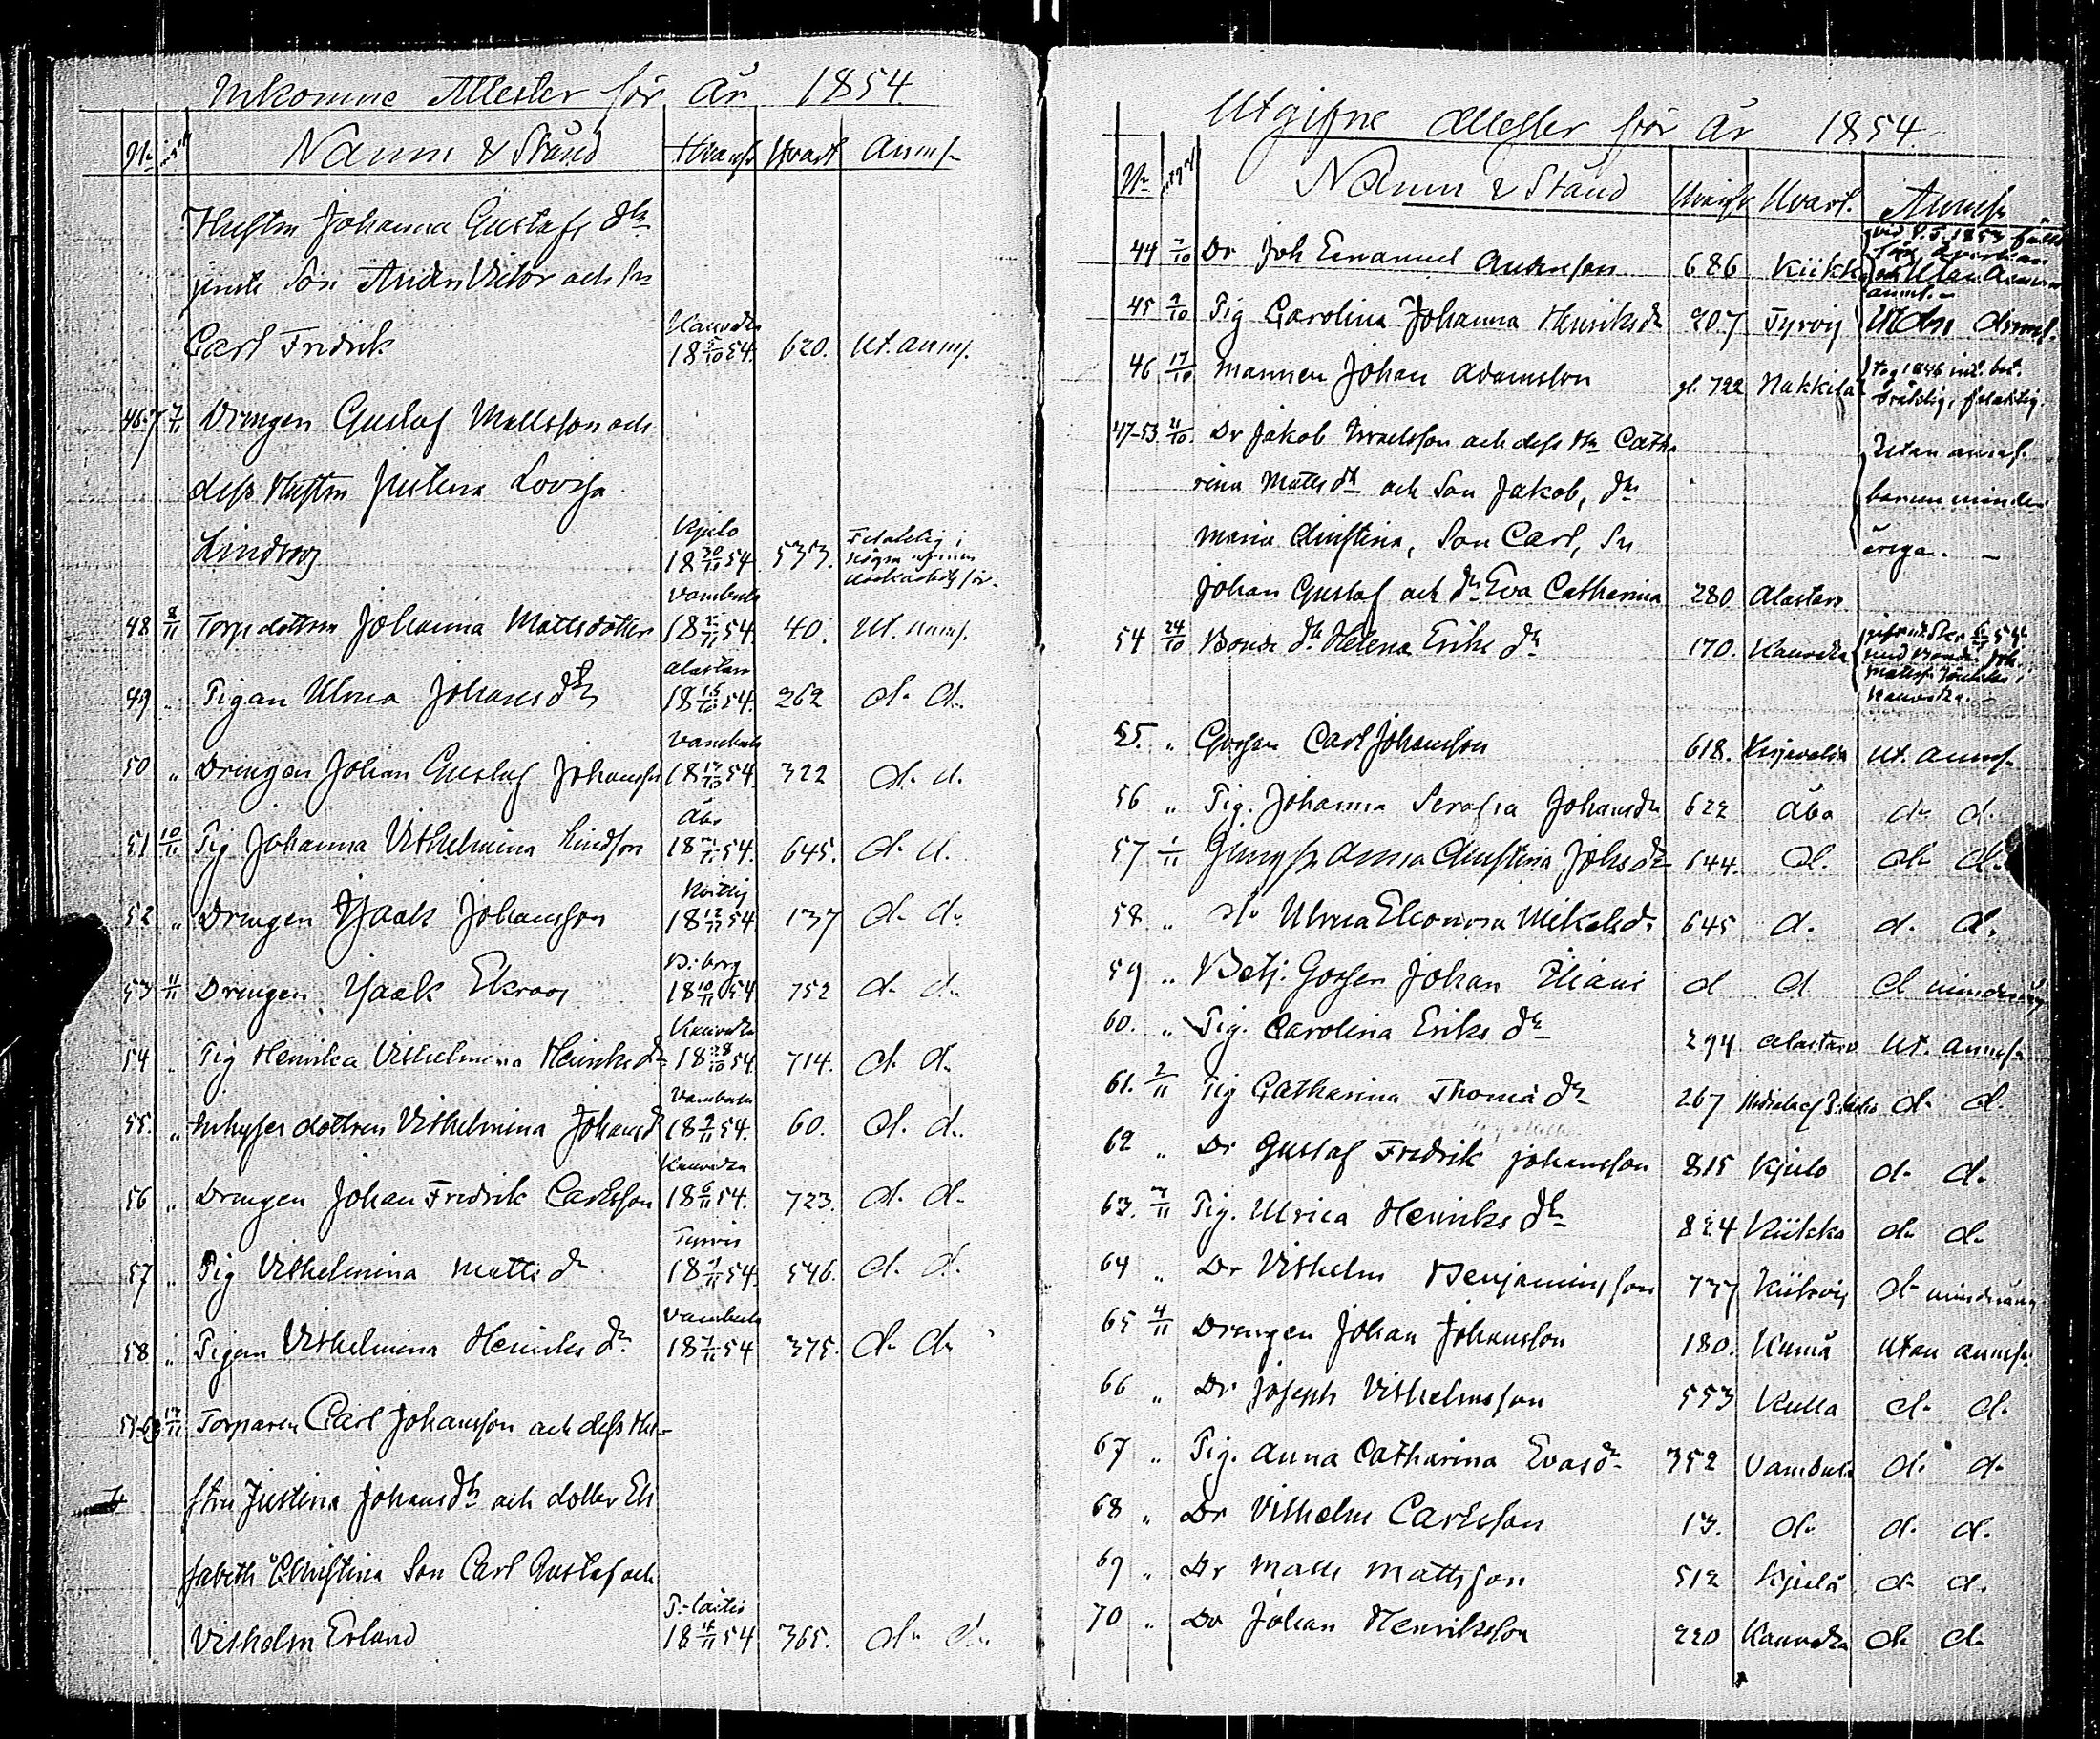 Inkomne Attester för År 1854.
No Namn & Stånd Hvarifr. Hvart Anmk
Hustrun Johanna Gustafs dr
jemte Son Anders Victor och Sn
Carl Fredrik Kauvatsa 18 5/10 54. 620. Ut. anmk.
46-7 7/11 Drengen Gustaf Mattsson och
dess Hustru Justina Lovisa
Lindroos Kjulo 18 30/10 54. 533.
48 8/11 Torpdottren Johanna Mattsdotter Vambula 54. 40. Ut. anmk.
49 „ Pigan Ulrica Johans dr Alastaro 18 15/10 54. 262 do do
50 „ Drengen Johan Gustaf Johansson Vambula 54. 322 do do
51 10/11 Pig Johanna Vilhelmina Lindfon Åbo 54. 645. do do
52 „ Drengen Isaak Johansson 54. 137 do do
53 11/11 Drengen Isaak Ekroos B:borg 18 10/11 54 752 do do
54 „ Pig Henrika Vilhelmina Henriks dr Kauvatsa 18 28/10 54. 714. do do
55. „ Inhyses dottren Vilhelmina Johans d Vambula 18 9/11 54. 60. do do
56 „ Drengen Johan Fredrik Carlsson Kauvatsa 18 6/11 54. 723. do do
57 „ Pig Vilhelmina Matts dr Tyrvis 54. 546. do do
58 „ Pigan Vilhelmina Henriks dr Vambula 18 7/11 54 375. do do
59-63 Torparen Carl Johansson och dess Hu-
strun Justina Johans dr och dotter Eli
sabeth Christina Son Carl Gustaf och
Vilhelm Erland P:laitis 54 365. do do
Utgifne Attester för År 1854.
No Namn & Stånd Hvarifr Hvart. Anmk
44 7/10 Dr Joh Emanuel Andersson 686 Kiikka
45 9/10 Pig Carolina Johanna Henriks dr 207 Tyrvis Utan Anmk.
46 17/10 Mannen Johan Adamsson 722
47-53 21/10 Dr Jakob Israelsson och dess Hu Catha Utan anmk.
rina Matts dr och Son Jakob, dr barnen minder
Maria Christina, Son Carl, Sn åriga.
Johan Gustaf och dr Eva Catharina 280 Alastaro
54 24/10 Bonde dr Helena Eriks dr 170. Kauvatsa
55. „ Gossen Carl Johansson 618. Ut. anmk.
56 „ Pig. Johanna Serafia Johans dr 622 Åbo do do
57 1/11 Jungfr Anna Christina Johs dr 644. do do do
58 „ do Ulrica Eleonora Mikels dr 645 do do do
59 „ Betj. Gossen Johan do do do minderårig
60. „ Pig. Carolina Eriks dr 294 Alastaro Ut. Anmk.
61. 2/11 Pig Catharina Thomä dr 267 do do
62 „ Dr Gustaf Fredrik Johansson 815 Kjulo do do
63. 3/11 Pig. Ulrica Henriks dr 824 Kiikka do do
64 „ Dr Vilhelm Benjaminsson 737 do minderårig
65 4/11 Drengen Johan Johansson 180. Kumå Utan anmk.
66 „ Dr Joseph Vilhelmsson 553 Kulla do do
67 „ Pig. Anna Catharina Evas dr 352 Vambula do do
68 „ Dr Vilhelm Carlsson 13. do do do
69 „ Dr Matts Mattsson 512 Kjulå do do
70 „ Dr Johan Henriksson 220 Kauvatsa do do